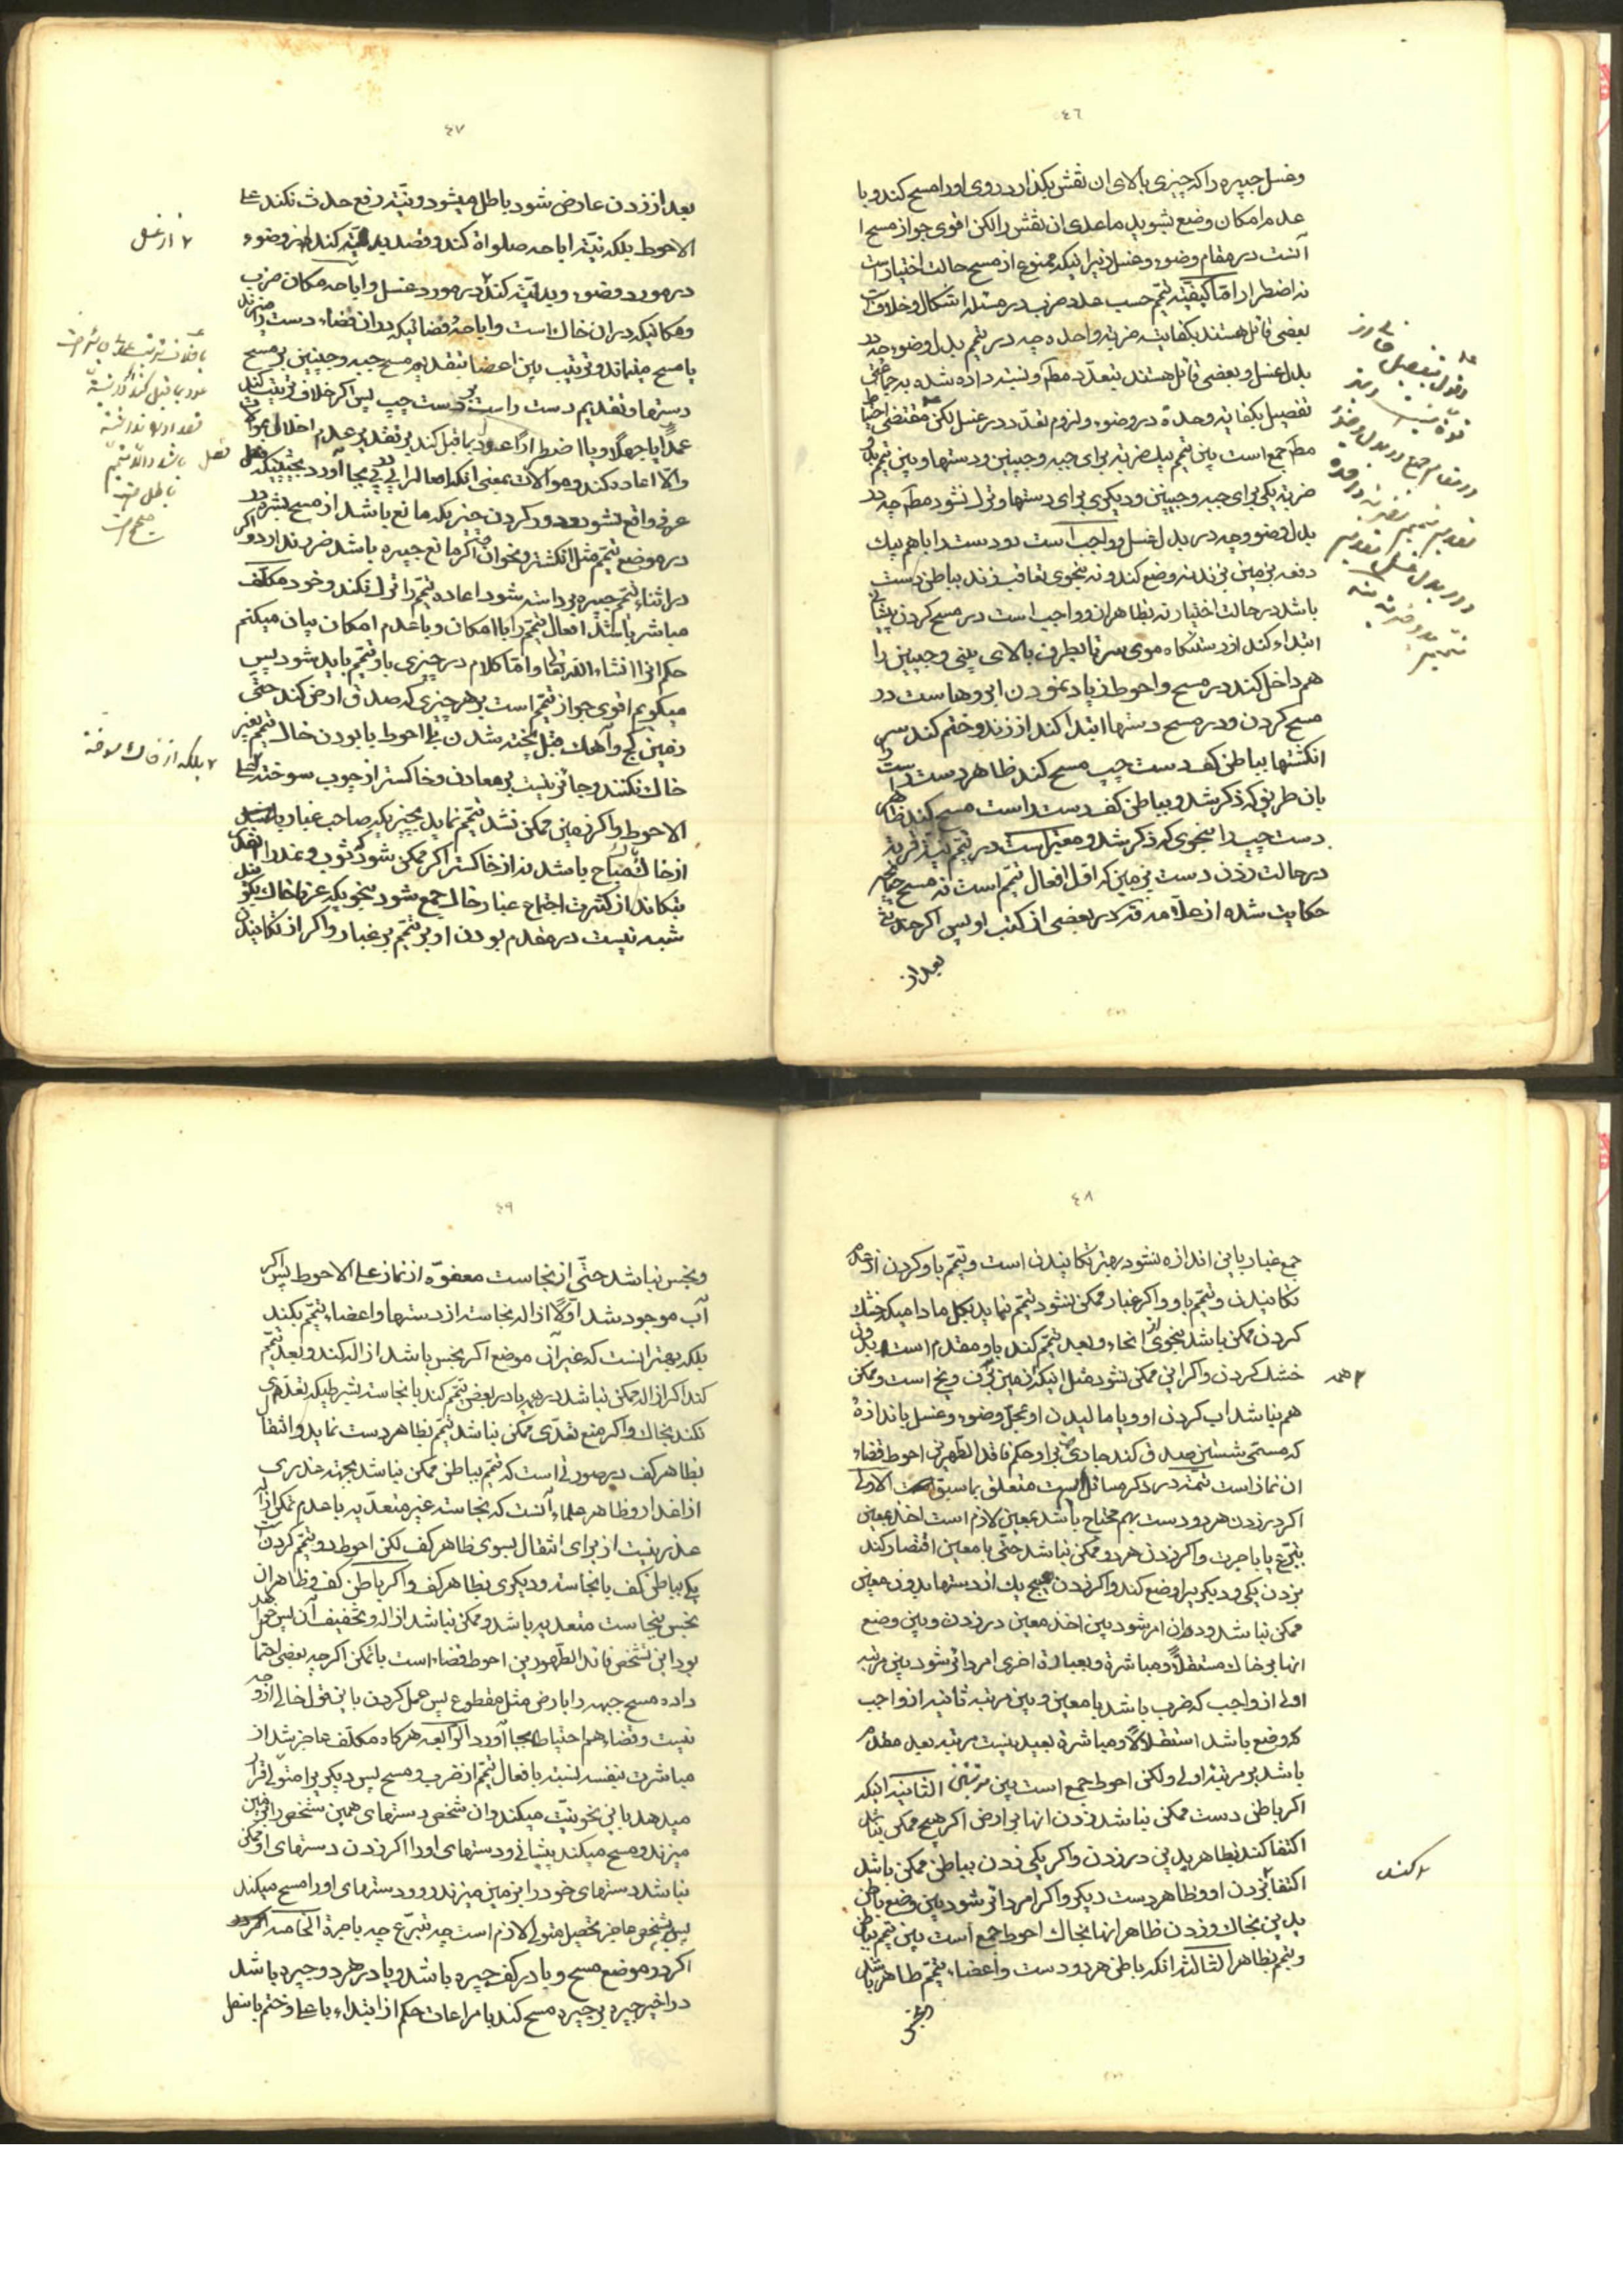 ٤٦
وغسل جبیره را که چیزی بالای ان نقش بگذارد و روی اورا مسح کند و با
عدم امکان وضع بشوید ماعدای ان نقش را لکن اقوی جواز مسح
آنست در مقام وضوء وغسل زیرا اینکه ممنوع از مسح حالت اختیار است
نه اضطرار امّا کیفیّة تیمّم حسب عدد ضرب در مسئله اشکال وخلاف است
بعضی قائل هستند بکفایت ضربة واحده چه در تیمّم بدل وضوء چه در
بدل غسل و بعضی قائل هستند بتعدّد مطم و نسبت داده شده بجماعتی
تفصیل بکفایة وحدة در وضوء ولزوم تعدّد در غسل لکن مقتضی احتیاط
مطم جمع است بین تیمّم بیك ضربة برای جبهه وجبینین ودستها وبین تیمّم بدو
ضربة یکی برای جبهه وجبینین ودیگری برای دستها وترك نشود مطم چه در
بدل وضوء وچه در بدل غسل وواجب است دو دست را باهم بیك
دفعه بزمین بزند نه وضع کند ونه بنحوی تعاقب وزند بباطن دست
باشد در حالت اختیار نه بظاهران وواجب است در مسح کردن پیشانی
ابتداء کند از رستنگاه موی سر تا بطرف بالای بینی وجبینین را
هم داخل کند در مسح واحوط زیاد نمودن ابروها است در
مسح کردن ودر مسح دستها ابتدا کند از زند وختم کند بسر
انگشتها بباطن کف دست چپ مسح کند ظاهر دست راست
بان طریق که ذکر شد و بباطن کف دست راست مسح کند ظاهر
دست چپ را بنحوی که ذکر شد ومعتبر است در تیمّم نیّت قربة
در حالت زدن دست بزمین که اوّل افعال تیمّم است نه مسح چنانچه
حکایت شده از علّامه قدّه در بعضی از کتب او پس اگر حدثی
بعد از
٤٧
بعد از زدن عارض شود باطل میشود ونیّت رفع حدث نکند علی
الاحوط بلکه نیّت اباحه صلواة کند وقصد بدلیّت کند از وضوء
در مورد وضوء وبدلیّت کند در مورد غسل واباحه مکان ضرب
ومکانیکه در ان خاك است واباحهٔ فضائیکه در ان فضاء دست را میزند
یا مسح مینماند وترتیب بین اعضا بتقدیم مسح جبهه وجبینین بر مسح
دستها وتقدیم دست راست بر دست چپ پس اگر خلاف ترتیب کند
عمدًا یا جهلًا ویا اضطرارًا عود بما قبل کند بر تقدیر عدم اخلال موالات
والّا اعاده کند وموالات بمعنی انکه افعال را پی در پی بجا آورد بحیثیتیکه
عرفی واقع نشود ودور کردن چیزیکه مانع باشد از مسح بشره در
در موضع تیمّم مثل انگشتر ونحو ان اگر مانع جبیره باشد ضرر ندارد واگر
در اثناء تیمّم جبیره برداشته شود اعاده تیمّم را ترك نکند وخود مکلّف
مباشر باشد افعال تیمّم را با امکان وبا عدم امکان بیان میکنم
حکم انرا انشاء الله تعالی وامّا کلام در چیزی باو تیمّم باید شود پس
میگویم اقوی جواز تیمّم است بر هر چیزی که صدق ارض کند حتّی
زمین گچ وآهك قبل پخته شدن علی احوط با بودن خاك تیمّم بغیر
خاك نکنند وجائز نیست بر معادن وخاکستر از چوب سوخته علی
الاحوط واگر زمین ممکن نشد تیمّم نماید بچیزیکه صاحب غبار باشد
از خاك مباح باشد نه از خاکستر اگر ممکن شود که ثوب ونمد را
بتکاند از کثرت اجتماع غبار خاك جمع شود بنحویکه عرفا خاك بگویند
شبه نیست در مقدم بودن او بر تیمّم بر غبار واگر از تکانیدن
٢ از غسل
٢ بلکه از خاك سوخته
٤٨
جمع غبار باین اندازه نشود بهتر تکانیدن است وتیمّم باو کردن از عدم
تکانیدن وتیمّم باو واگر غبار ممکن نشود تیمّم نماید بگل مادامیکه خشك
کردن ممکن باشد بنحوی از انحاء وبعد تیمّم کند باو ومقدم است بدون
خشك کردن واگر این ممکن نشود مثل اینکه زمین برف ویخ است وممکن
هم نباشد اب کردن او ویا مالیدن او بمحلّ وضوء وغسل باندازهٔ
که مسمّی شستن صدق کند جاری بر او حکم فاقد الطّهورین احوط قضاء
ان نماز است تتمّة در ذکر مسائل است متعلّق بما سبق الاولی
اگر در زدن هر دو دست بهم محتاج باشد بمعین لازم است اخذ معین
بتبرّع یا باجرت واگر زدن هر دو ممکن نباشد حتّی با معین اقتصار کند
بزدن یکی ودیگری را وضع کند واگر زدن هیچ یك از دستها بدون معین
ممکن نباشد ودوران امر شود بین اخذ معین در زدن وبین وضع
انها بر خاك مستقلًّا ومباشرة وبعبارة اخری امر دائر شود بین مرتبه
اولی از واجب که ضرب باشد با معین وبین مرتبه ثانیه از واجب
که وضع باشد استقلالًا ومباشرة بعید نیست مرتبه بعید مقدم
باشد بر مرتبه اولی ولکن احوط جمع است بین مرتبتین الثانیه انکه
اگر باطن دست ممکن نباشد زدن انها بر ارض اگر هیچ ممکن نباشد
اکتفا کند بظاهر یدین در زدن واگر یکی زدن بباطن ممکن باشد
اکتفا بزدن او وظاهر دست دیگر واگر امر دائر شود بین وضع باطن
یدین بخاك وزدن ظاهر انها بخاك احوط جمع است بین تیمّم بباطن
وتیمّم بظاهر الثالثه انکه باطن هر دو دست واعضاء تیمّم طاهر باشد
٢ کند
٤٩
ونجس نباشد حتّی از نجاست معفوّه از نماز علی الاحوط پس اگر
آب موجود شد اوّلًا ازاله نجاست از دستها واعضاء تیمّم بکند
بلکه بهتر انست که غیر آن موضع اگر نجس باشد ازاله کند وبعد تیمّم
کند اگر ازاله ممکن نباشد در همه یا در بعض تیمّم کند با نجاست بشرطیکه تعدّی
نکند بخاك واگر منع تعدّی ممکن نباشد تیمّم بظاهر دست نماید وانتقال
بظاهر کف در صورتی است که تیمّم بباطن ممکن نباشد بجهة عذری
از اعذار وظاهر علماء آنست که نجاست غیر متعدّیه با عدم تمکن ازاله
عذر نیست از برای انتقال بسوی ظاهر کف لکن احوط دو تیمّم کردن است
یکی بباطن کف با نجاست ودیگری بظاهر کف واگر باطن کف وظاهر ان
نجس بنجاست متعدیه باشد وممکن نباشد ازاله وتخفیف آن پس
بود این شخص فاقد الطّهورین احوط قضاء است با تمکن اگرچه بعضی احتمال
داده مسح جبهه را بارض مثل مقطوع پس عمل کردن باین قول خالی از وجه
نیست وقضاء هم احتیاطا بجا آورد الرّابعه هر گاه مکلّف عاجز شد از
مباشرت بنفسه نسبة بافعال تیمّم از ضرب ومسح پس دیگری را متولّی قرار
میدهد باین نحو نیّت میکند وان شخص دستهای همین شخص را بزمین
میزند ومسح میکند پیشانی ودستهای اورا اگر زدن دستهای او ممکن
نباشد دستهای خود را بزمین میزند ورو ودستهای اورا مسح میکند
پس بشخص عاجز تحصیل متولّی لازم است چه بتبرّع چه باجرة الخامسه
اگر در موضع مسح ویا در کف جبیره باشد ویا در هر دو جبیره باشد
در اخیر جبیره بر جبیره مسح کند با مراعات حکم از ابتداء باعلی وختم باسفل